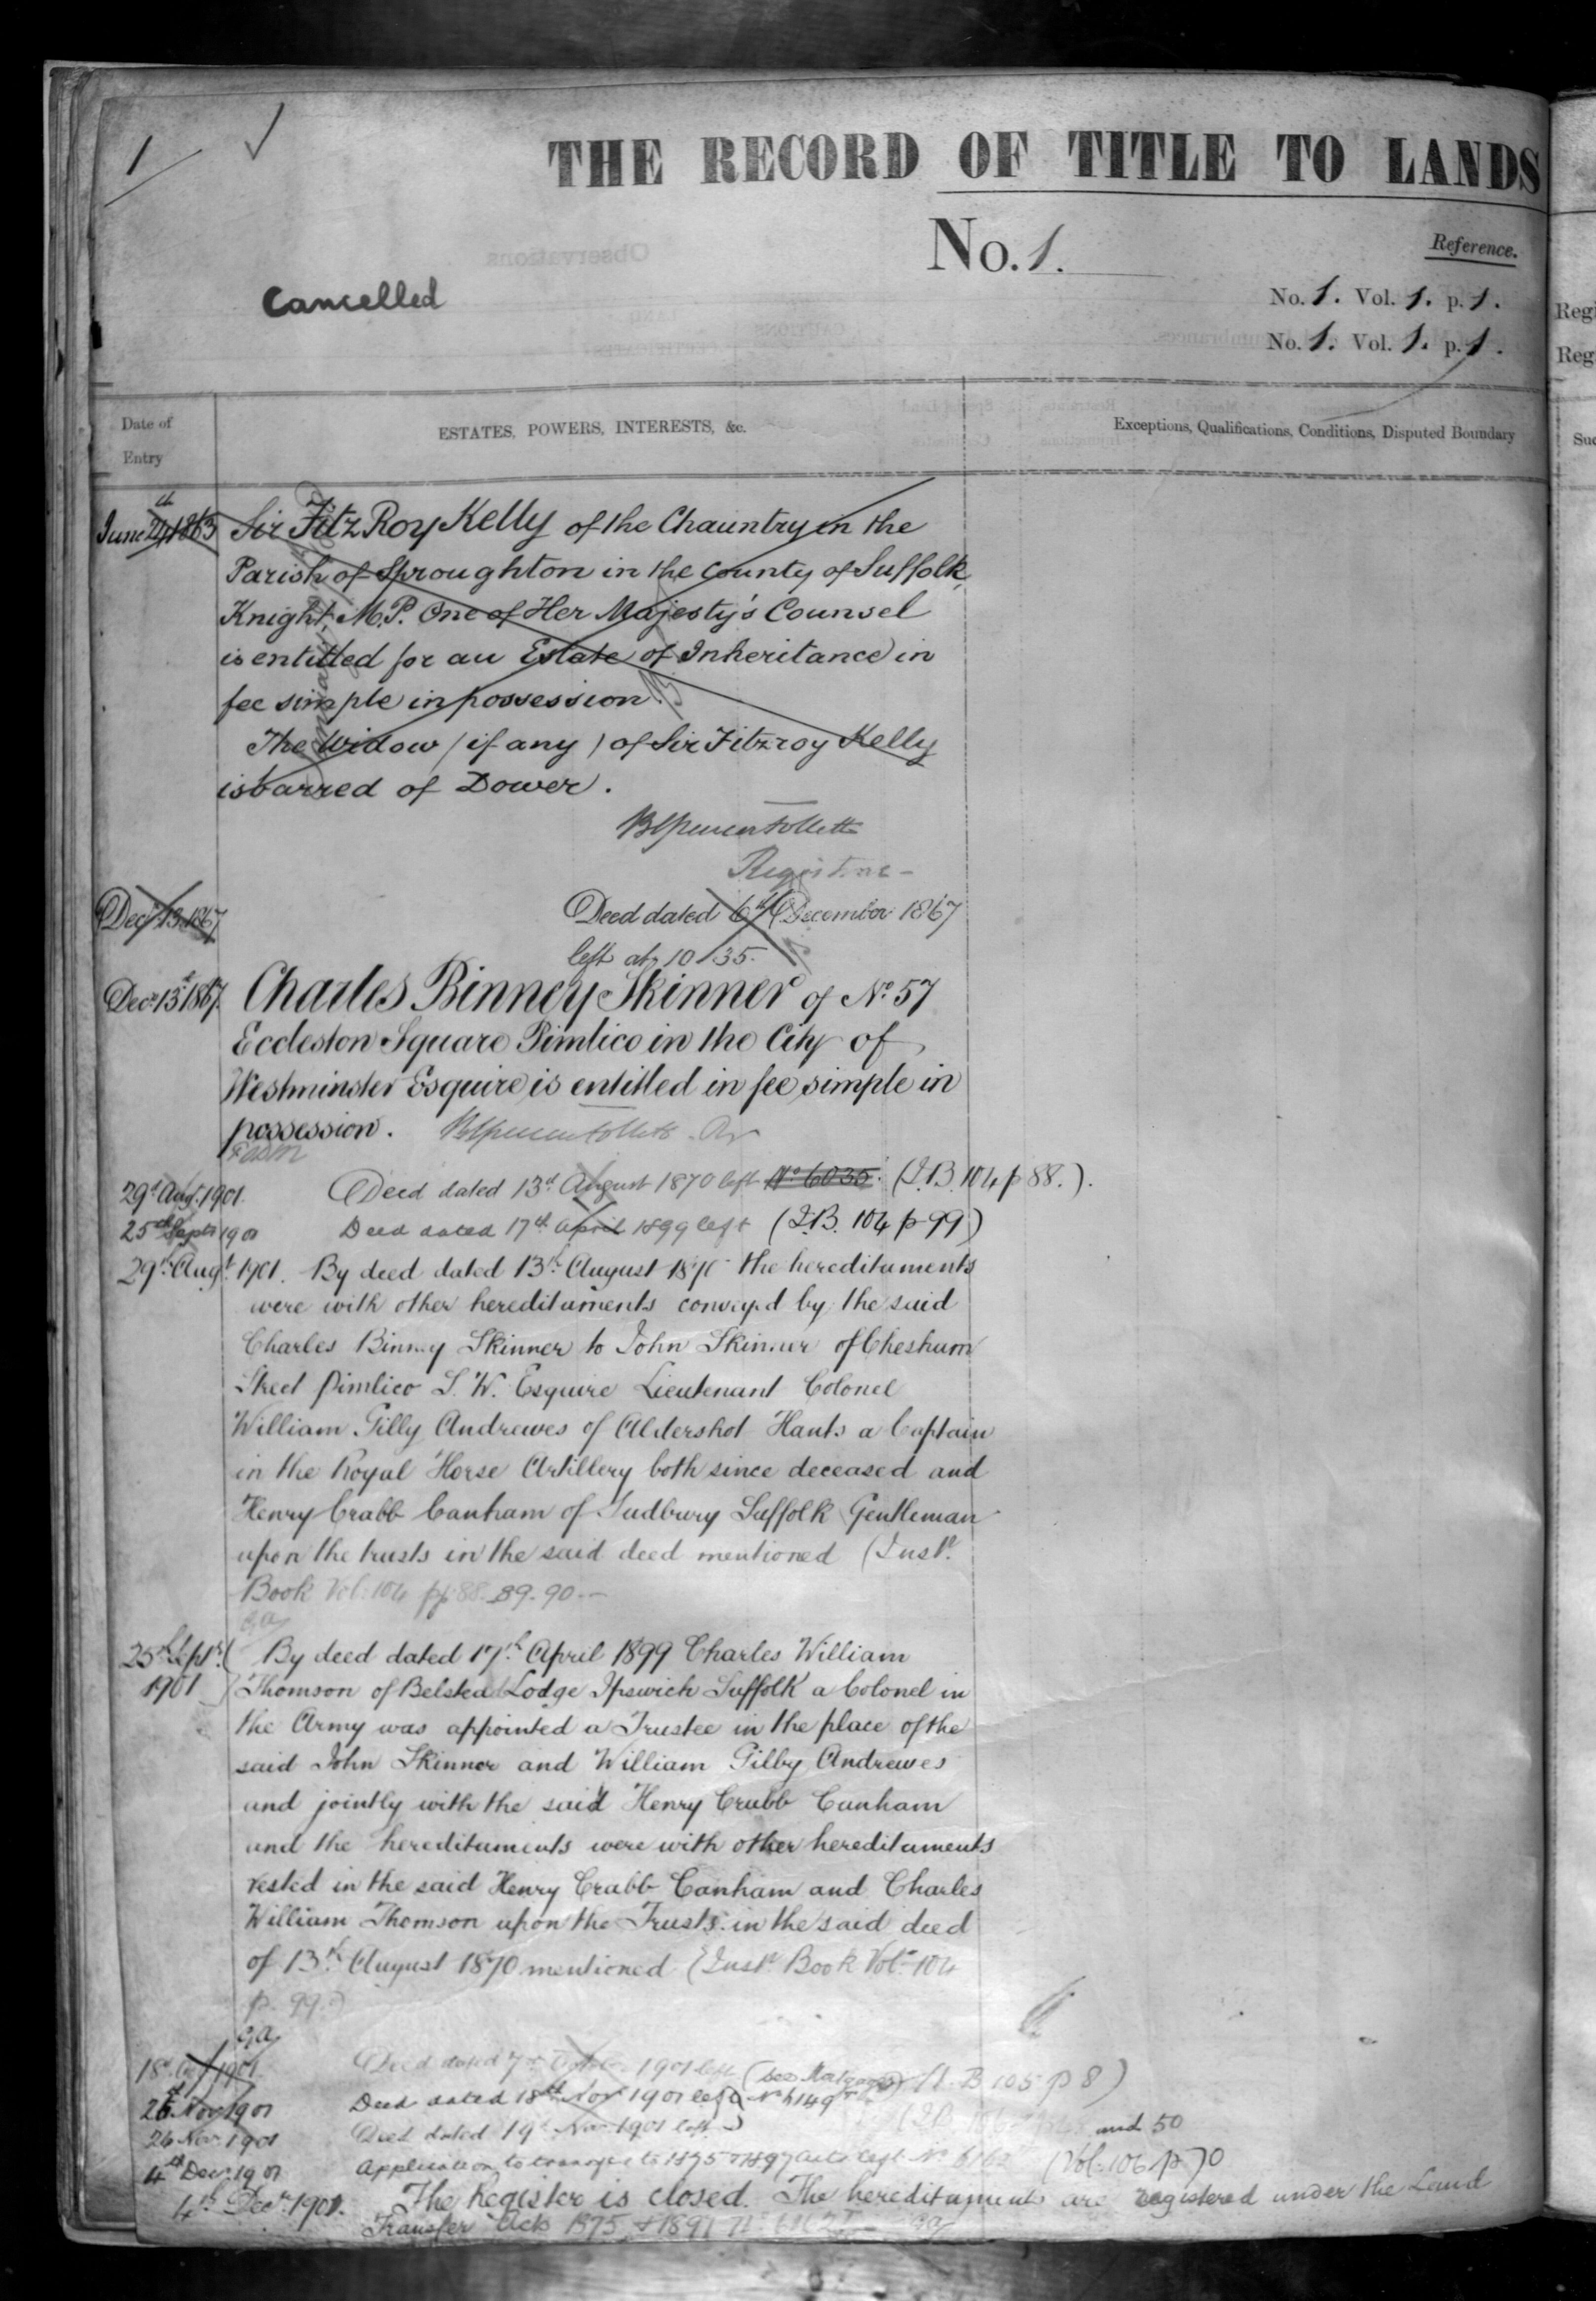 1
THE RECORD OF TITLE TO LANDS
No. 1.
Reference.
Cancelled
No. 1. Vol. 1. p. 1.
No. 1. Vol. 1. p. 1.
Regi
Reg
Date of Entry
ESTATES, POWERS, INTERESTS, &c.
Exceptions, Qualifications, Conditions, Disputed Boundary
Suc
June 24th 1863 Sir Fitz Roy Kelly of the Chauntry in the
Parish of Sproughton in the County of Suffolk,
Knight, M.P. One of Her Majesty's Counsel
is entitled for an Estate of Inheritance in
fee simple in possession.
The Widow (if any) of Sir Fitzroy Kelly
is barred of Dower.
Registrar
Decr 13 1867 Deed dated 6th December 1867
left at 10 35.
Decr 13th 1867. Charles Binney Skinner of No. 57
Eccleston Square Pimlico in the City of
Westminster Esquire is entitled in fee simple in
possession.
29th Aug. 1901. Deed dated 13th August 1870 left No 6035. (I.B. 104 p 88.).
25th Septr 1901 Deed dated 17th April 1899 left (I.B. 104 p 99)
29th Augt. 1901. By deed dated 13th August 1870 the hereditaments
were with other hereditaments conveyed by the said
Charles Binney Skinner to John Skinner of Chesham
Street Pimlico S. W. Esquire Lieutenant Colonel
William Gilly Andrewes of Aldershot Hants a Captain
in the Royal Horse Artillery both since deceased and
Henry Crabb Canham of Sudbury Suffolk Gentleman
upon the trusts in the said deed mentioned (Instt.
Book Vol: 104 pp 88. 89. 90.—
GA
25th Septr. 1901 By deed dated 17th April 1899 Charles William
Thomson of Belstead Lodge Ipswich Suffolk a Colonel in
the Army was appointed a Trustee in the place of the
said John Skinner and William Gilby Andrewes
and jointly with the said Henry Crabb Canham
and the hereditaments were with other hereditaments
vested in the said Henry Crabb Canham and Charles
William Thomson upon the Trusts in the said deed
of 13th August 1870 mentioned (Instt. Book Vol. 104
p. 99.)
GA
1901 Deed dated 7th 1901 left (see Mortgages) (I. B 105 p 8)
26th Nov 1901 Deed dated 18th Nov 1901 left No 6149
26 Nov. 1901 Deed dated 19th Nov 1901 left and 50
4th Decr. 1901 Application to transfer to 1875 & 1897 Acts left No (Vol. 106 p 70
4th Decr. 1901. The Register is closed. The hereditaments are registered under the Land
Transfer Acts 1875 & 1897